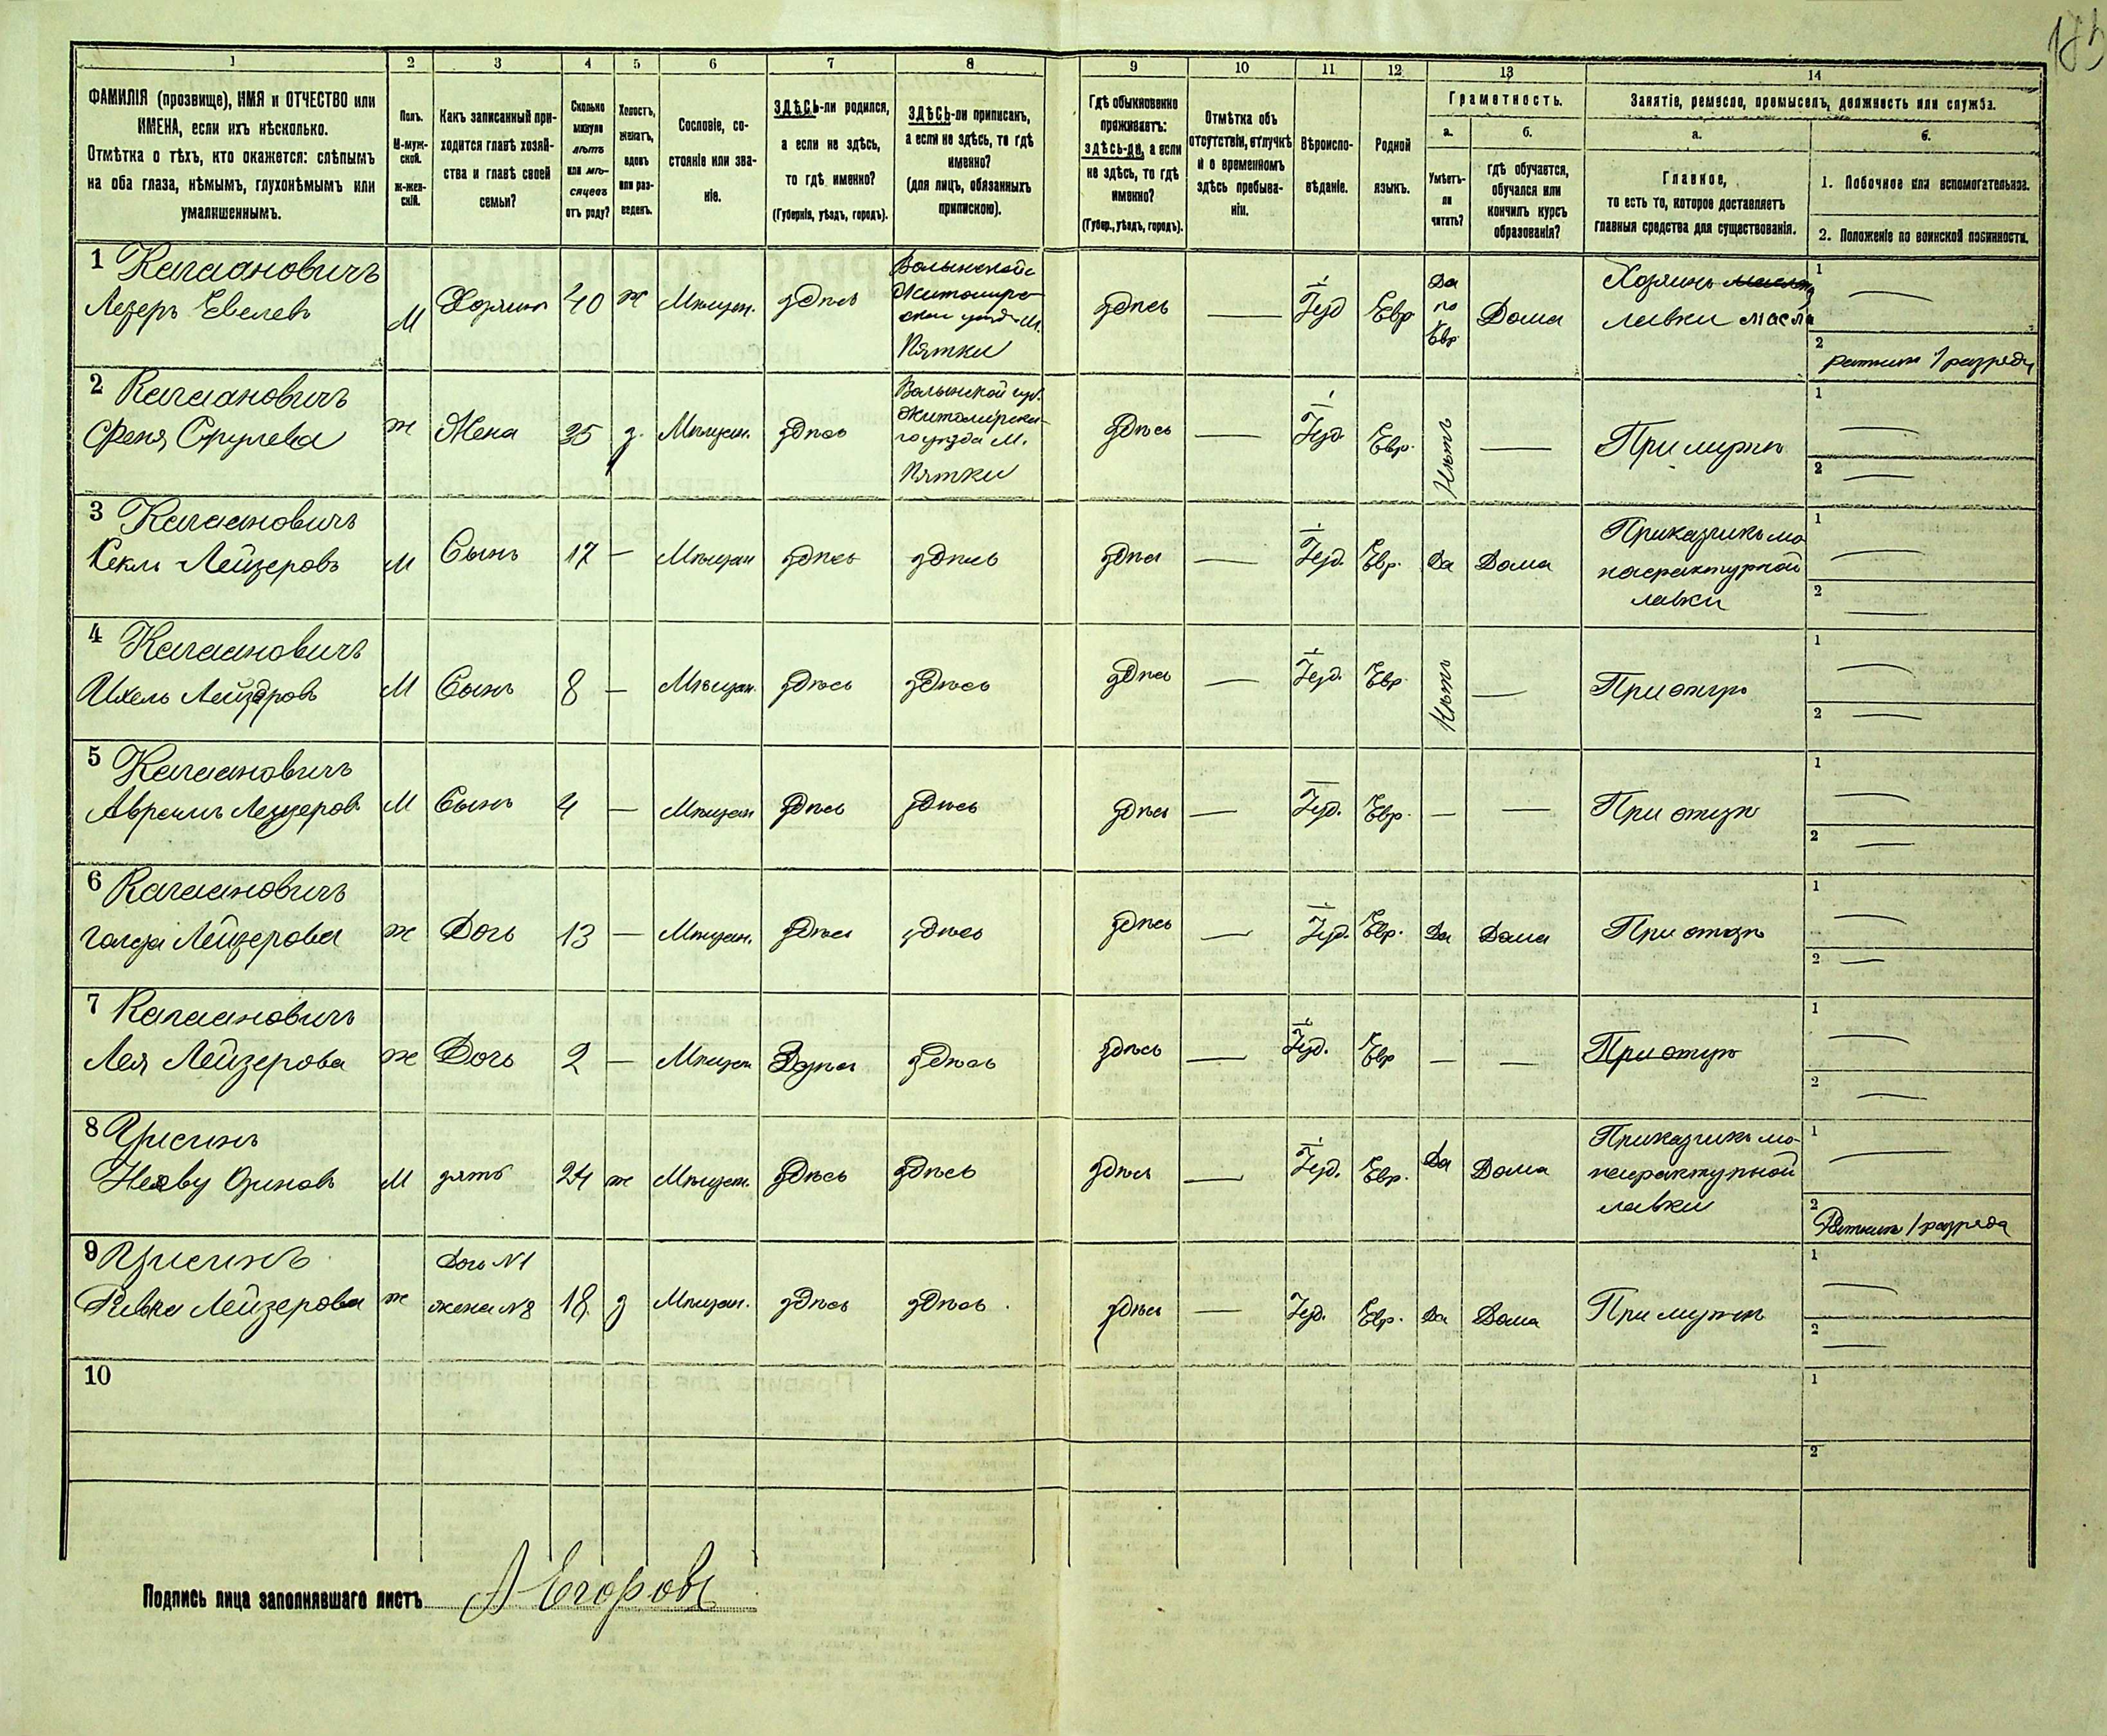 185
1 2 3 4 5 6 7 8 9 10 11 12 13 14
ФАМИЛІЯ (прозвище), ИМЯ и ОТЧЕСТВО или
ИМЕНА, если ихъ нѣсколько.
Отмѣтка о тѣхъ, кто окажется: слѣпымъ
на оба глаза, нѣмымъ, глухонѣмымъ или
умалишеннымъ.
Полъ.
М-муж-
ской.
Ж-жен-
скій.
Какъ записанный при-
ходится главѣ хозяй-
ства и главѣ своей
семьи?
Сколько
минуло
лѣтъ
или мѣ-
сяцевъ
отъ роду?
Холостъ,
женатъ,
вдовъ
или раз-
веденъ.
Сословіе, со-
стояніе или зва-
ніе.
ЗДѢСЬ-ли родился,
а если не здѣсь,
то гдѣ именно?
(Губернія, уѣздъ, городъ).
ЗДѢСЬ-ли приписанъ,
а если не здѣсь, то гдѣ
именно?
(для лицъ, обязанныхъ
припискою).
Гдѣ обыкновенно
проживаетъ:
здѣсь-ли, а если
не здѣсь, то гдѣ
именно?
(Губер., уѣздъ, городъ).
Отмѣтка объ
отсутствіи, отлучкѣ
и о временномъ
здѣсь пребыва-
ніи.
Вѣроиспо-
вѣданіе.
Родной
языкъ.
Грамотность.
а.
Умѣетъ-
ли
читать?
б.
гдѣ обучается,
обучался или
кончилъ курсъ
образованія?
Занятіе, ремесло, промыселъ, должность или служба.
а.
Главное,
то есть то, которое доставляетъ
главныя средства для существованія.
б.
1. Побочное или вспомогательное.
2. Положеніе по воинской повинности.
1 Кагановичъ
Лезеръ Евелевъ
М Хозяинъ 40 ж Мѣщан. здѣсь
Волынской
Житомир-
скаго уѣзда М.
Пятки
здѣсь — Іуд Евр
Да
по
Евр
Дома
Хозяинъ
лавки масла
1 —
2 ратникъ 1 разряда
2 Кагановичъ
Феня Срулева
ж Жена 35 з. Мѣщан. здѣсь
Волынской губ.
Житомирска-
го уѣзда М.
Пятки
здѣсь — Іуд. Евр. Нѣтъ — При мужѣ
1 —
2 —
3 Кагановичъ
Лейзеровъ
М Сынъ 17 — Мѣщан здѣсь здѣсь
здѣсь — Іуд. Евр. Да Дома
Приказчикъ ма
нафактурной
лавки
1 —
2 —
4 Кагановичъ
Ихель Лейзеровъ
М Сынъ 8 — Мѣщан. здѣсь здѣсь
здѣсь — Іуд. Евр Нѣтъ — При отцѣ
1 —
2 —
5 Кагановичъ
Авремъ Лейзеров
М Сынъ 4 — Мѣщан здѣсь здѣсь
здѣсь — Іуд. Евр. — — При отцѣ
1 —
2 —
6 Кагановичъ
Голда Лейзерова
ж Дочь 13 — Мѣщан. здѣсь здѣсь
здѣсь — Іуд. Евр. Да Дома При отцѣ
1 —
2 —
7 Кагановичъ
Лея Лейзерова
ж Дочь 2 — Мѣщан здѣсь здѣсь
здѣсь — Іуд. Евр — — При отцѣ
1 —
2 —
8
М зять 24 ж Мѣщан. здѣсь здѣсь
здѣсь — Іуд. Евр. Да Дома
Приказчикъ ма-
нафактурной
лавки
1 —
2 Ратникъ 1 разряда
9
Ривка Лейзерова
ж
Дочь №1
жена №8
18 з Мѣщан. здѣсь здѣсь
здѣсь — Іуд. Евр. Да Дома При мужѣ
1 —
2 —
10
1
2
Подпись лица заполнявшаго листъ А Егоровъ